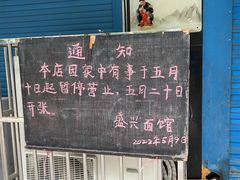 通知
本店因家中有事于五月
十日起暂停营业,五月二十日
开张.
盛兴面馆
2022年5月9日